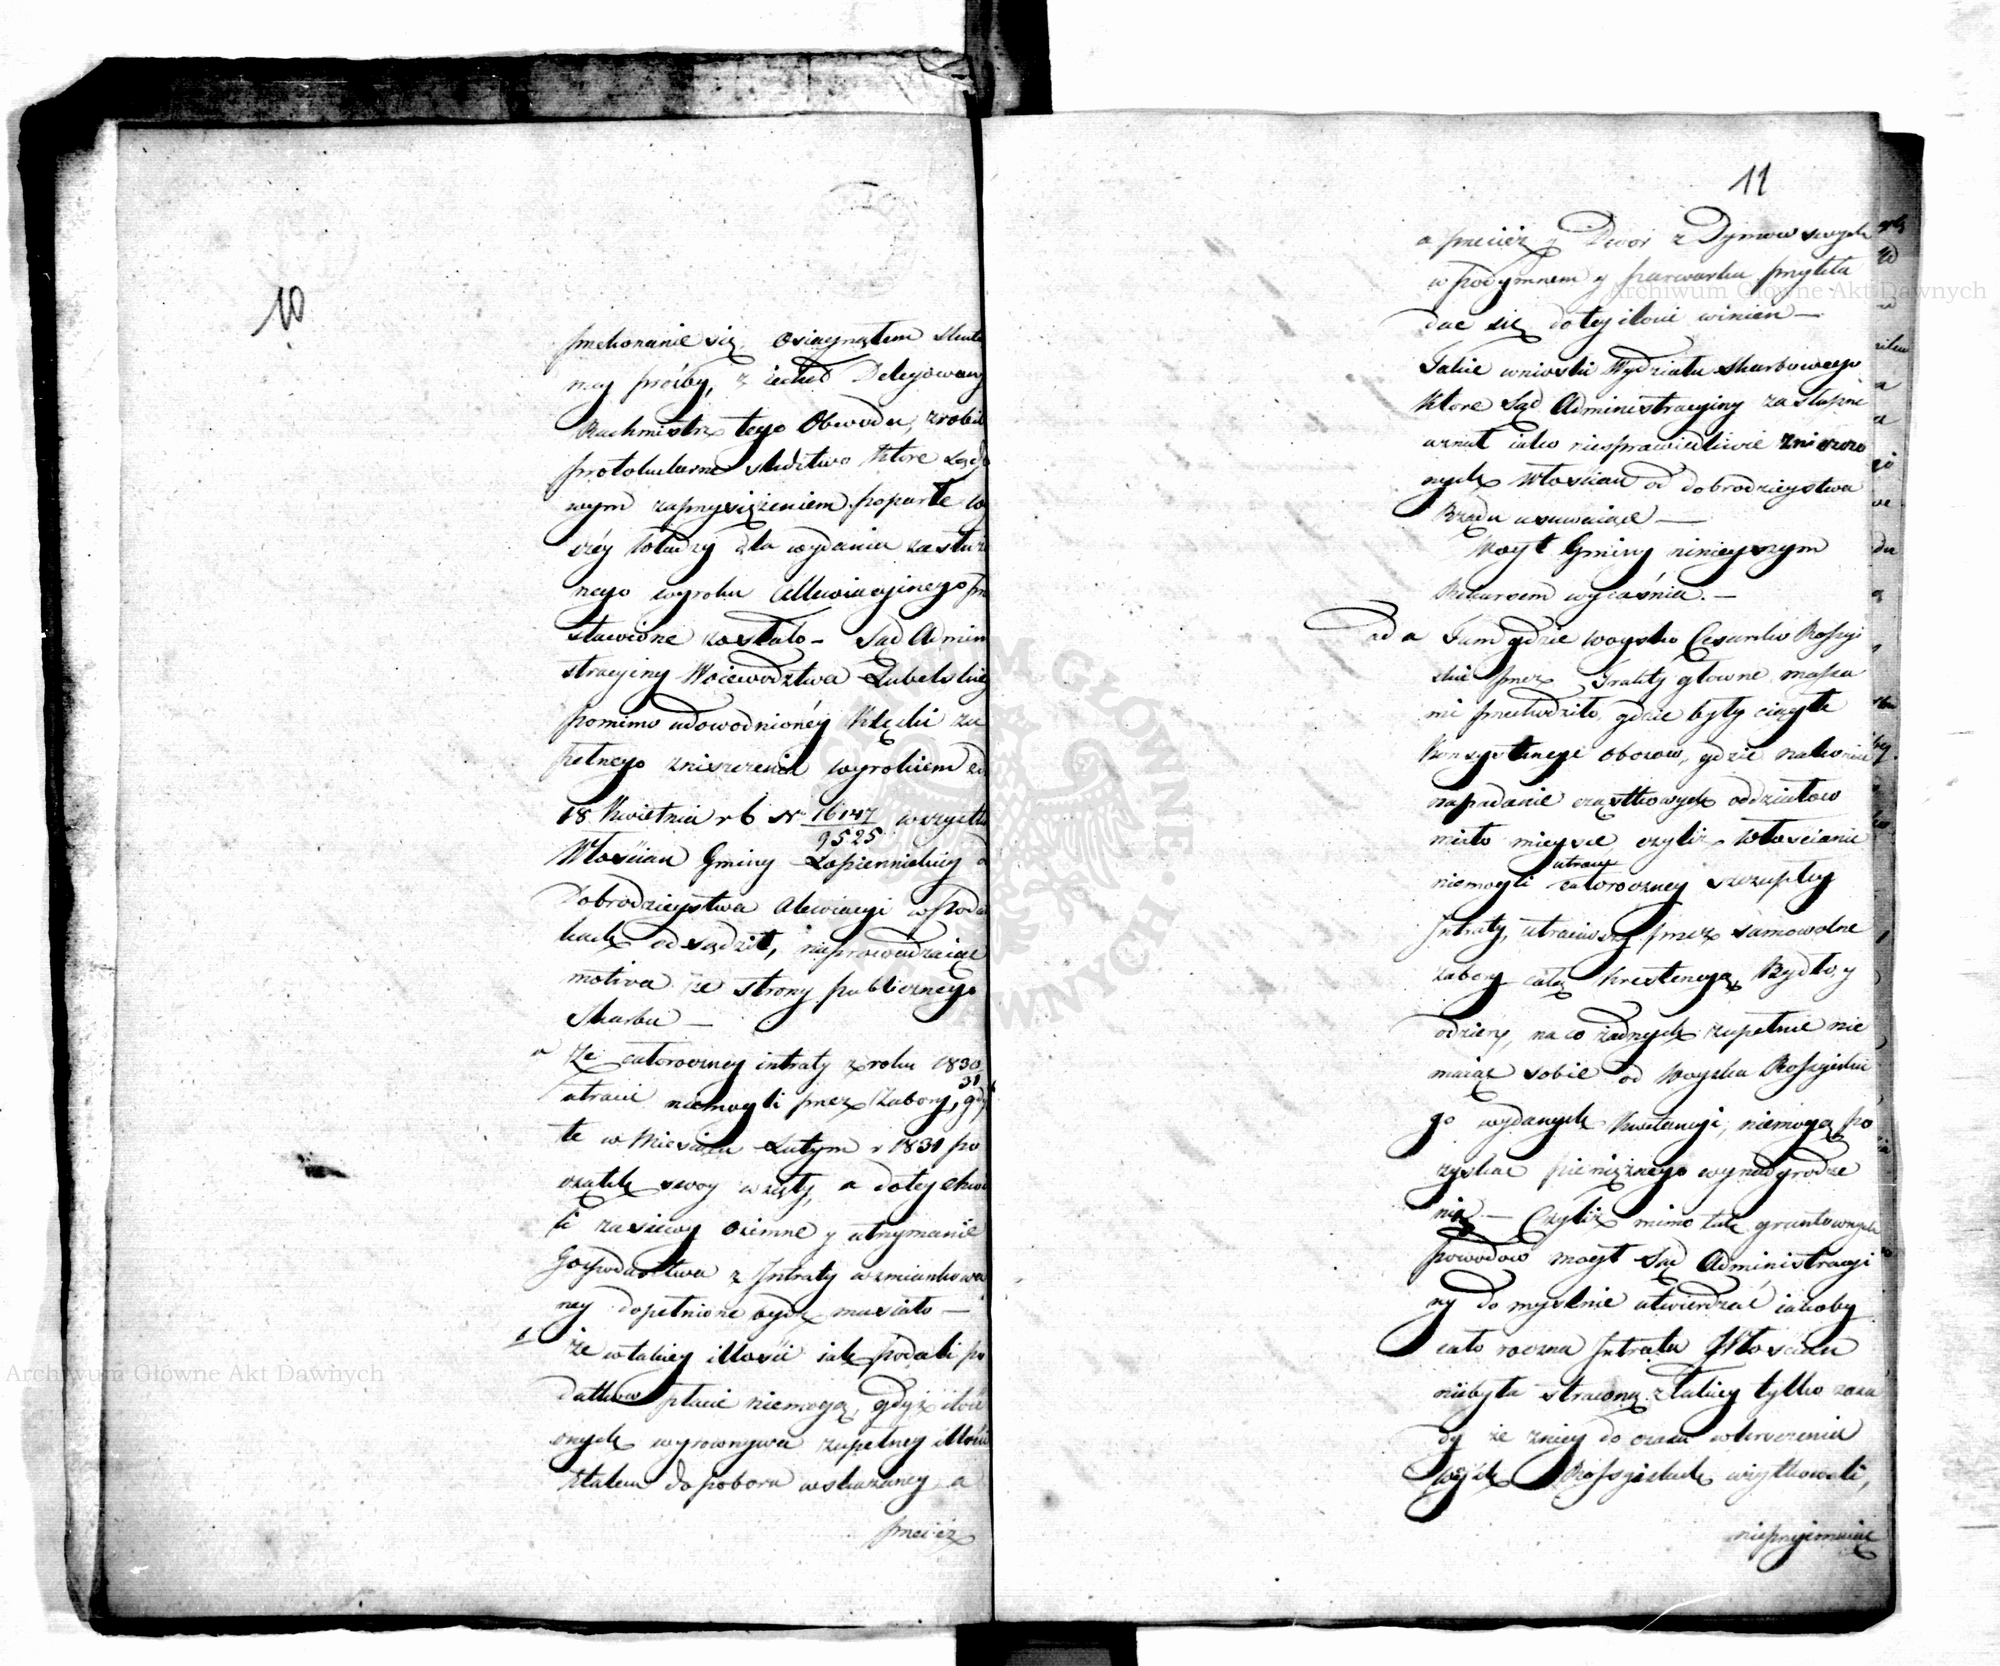 10
przekonanie się, osiągnąłem skute
mey prośby, z iechał Delegowany
Rachmistrz tego Obwodu, zrobił
protokularne śledztwo które Sądo
wym zaprzysiężeniem poparte wy
széy władzy dla wydania zasłużo
nego wyroku Allewiacyinego prze
stawione zostało – Sąd Admini
stracyiny Woiewództwa Lubelskieg
pomimo udowodnionéy klęski zu
pełnego zniszczenia wyrokiem z d
18 Kwietnia r b Nr 16147/9525 wszystk
Włościan Gminy Łopiennickiey o
Dobrodzieystwa Alewiacyi w Poda
kach odsądził, naprowadzaiąc
motiva ze strony publicznego
Skarbu —
a Że całoroczney intraty z roku 1830/31
utracić niemogli przez zabory, gdy
te w Miesiącu Lutym r 1831 po
czątek swoy wzięły, a dotychcza
i zasiewy ozimne y utrzymanie
Gospodarstwa z Intraty wzmiankowa
ney dopełnione bydź musiało —
b że w takiey illości iak podali po
datków płacić niemogą, gdyż ilość
onych wyrownywa zupełney illości
Etatem do poboru wskazaney a
przecież
11
a przecież y Dwór z Dymów swych
w podymnem y szarwarku przykła
dać się do tey ilości winien —
Takie wnioski Wydziału Skarbowego
które Sąd Administracyiny za słuszne
uznał iako niesprawiedliwie zniszczo
nych Włościan od dobrodzieystwa
Rządu usuwaiące —
Woyt Gminy ninieyszym
Rekursem wyiaśnia. —
ad a Tam gdzie woysko Cesarsko Rossyi
skie przez Trakty główne massa
mi przechodziło, gdzie były ciągłe
Konsystencye obozów, gdzie nakoniec
napadanie cząstkowych oddziałow
miało mieysce, czyliż Włościanie
niemogli utracić całoroczney szczupłey
Intraty, utraciwszy przez samowolne
zabory całą krescencyą, Bydło, y
odzież, na co żadnych zupełnie nie
maiąc sobie od Woyska Rossyiskie
go wydanych Kwitancyi, niemogą po
zyskać pieniężnego wynadgrodze
nia — Czyliż mimo tak gruntownych
powodów mógł Sąd Administracyi
ny domyślnie utwierdzać iakoby
cało roczna Intrata Włościan
niebyła straconą z takiey tylko zasa
dy że zniey do czasu wkroczenia
Woysk Rossyiskich użytkowali,
nieprzyimuiąc
Archiwum Główne Akt Dawnych
Archiwum Główne Akt Dawnych